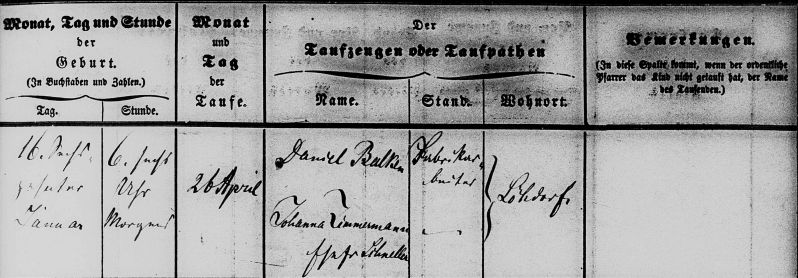 Monat, Tag und Stunde
der
Geburt.
(In Buchstaben und Zahlen.)
Tag.
Stunde.
Monat
und
Tag
der
Taufe.
Der
Taufzeugen oder Taufpathen
Name.
Stand.
Wohnort.
Bemerkungen.
(In diese Spalte kommt, wenn der ordentliche
Pfarrer das Kind nicht getauft hat, der Name
des Taufenden.)
16. Sechs-
zehnter
Januar
6. sechs
Uhr
Morgens
26 April
Daniel
Johanna Zimmermann
Fabrikar-
beiter
"